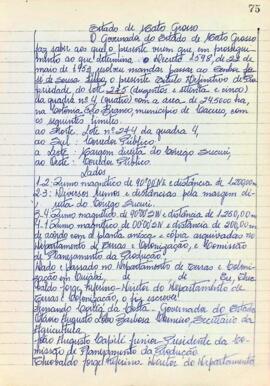 75
Estado de Mato Grosso
O Governo do Estado de Mato Grosso
faz saber aos que o presente virem que, em prosegui-
mento ao que determina o Decreto 1598, de 22 de
maio de 1953 resolveu mandar passar ao Senhor
de Sousa o presente Título Definitivo de Pro-
priedade do lote 275 (duzentos e setenta e cinco)
da quadra nº 4 (quatro) com a área de 24,5000 ha,
na Colonia município de Cáceres, com
os seguintes limites:
ao Norte: Lote nº 274 da quadra 4,
ao Sul: Corredor Público,
a Leste: Margem direita do Corrego
ao Oeste: Corredor Público
Lados
1.2: Rumo magnetico de 90º00'NE e distância de 1.200,00m
2.3: Diversos rumos e distâncias pela margem di-
reita do Corrego
3.4: Rumo magnetico de 90º00'SW e distância de 1.250,00m
4.1: Rumo magnetico de 00º00'SN e distância de 200,00m
de acôrdo com a planta anexa e cópia arquivadas no
Departamento de Terras e Colonização, e Comissão
de Planejamento da Produção.
Dado e passado no Departamento de Terras e Coloni-
zação em Cuiabá, de de Eu,
Jorge do Departamento de
Terras e Colonização, o fiz escrever!
Fernando Corrêa da Costa - Governador do Estado
Clovis Augusto Secretário da
Agricultura
João Augusto Capilé Junior - Presidente da Co-
missão de Planejamento da Produção
Jorge do Departamento